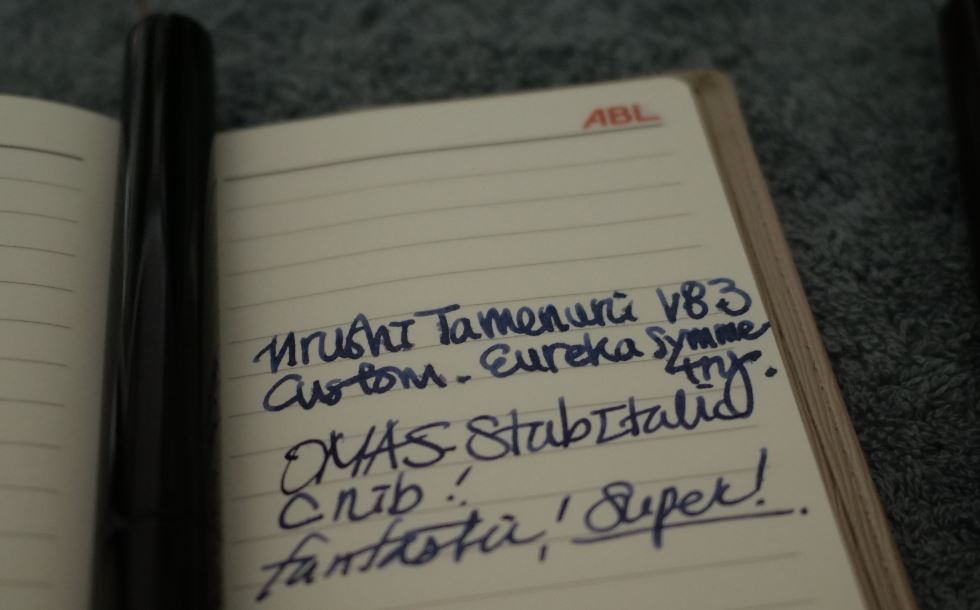 ABL
Urushi Tamenuri V83
Custom. Eureka Symme
try.
OMAS Stub Italic
C nib!
fantastic! Super!